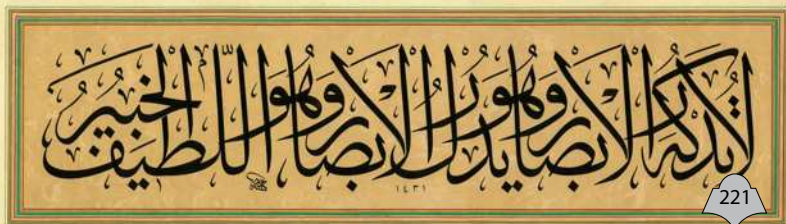 لَا تُدْرِكُهُ الْأَبْصَارُ وَهُوَ يُدْرِكُ الْأَبْصَارَ وَهُوَ اللَّطِيفُ الْخَبِيرُ
١٤٣١
221